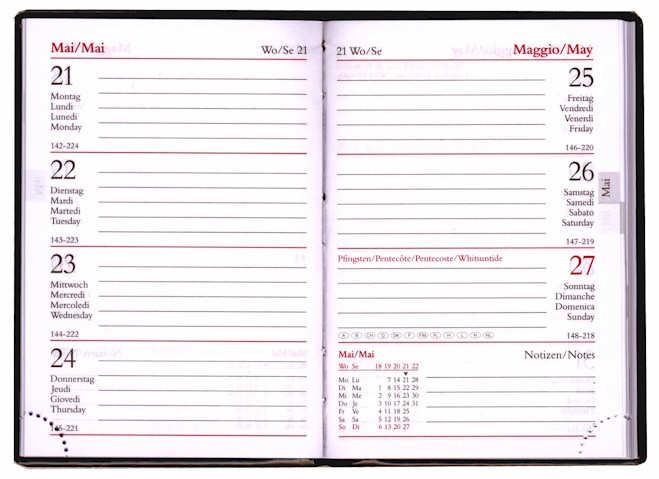 Mai/Mai
Wo/Se 21
21
Montag
Lundi
Lunedi
Monday
142-224
22
Dienstag
Mardi
Martedi
Tuesday
143-223
23
Mittwoch
Mercredi
Mercoledi
Wednesday
144-222
24
Donnerstag
Jeudi
Giovedi
Thursday
145-221
21 Wo/Se
Maggio/May
25
Freitag
Vendredi
Venerdi
Friday
146-220
26
Samstag
Samedi
Sabato
Saturday
147-219
Mai
Pfingsten/Pentecôte/Pentecoste/Whitsuntide
27
Sonntag
Dimanche
Domenica
Sunday
148-218
A B CH D DK F FIN FL H L N NL
Mai/Mai
Notizen/Notes
Wo Se 18 19 20 21 22
Mo Lu 7 14 21 28
Di Ma 1 8 15 22 29
Mi Me 2 9 16 23 30
Do Je 3 10 17 24 31
Fr Ve 4 11 18 25
Sa Sa 5 12 19 26
So Di 6 13 20 27